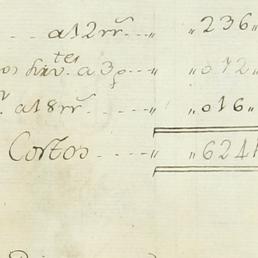 . . a 12 rr̃ . . . „ „ 236 „
os a 3 „ „ 0 72 „
a 18 rr̃ . . „ „ 0 16 „
Cortos . . . . „ „ 624